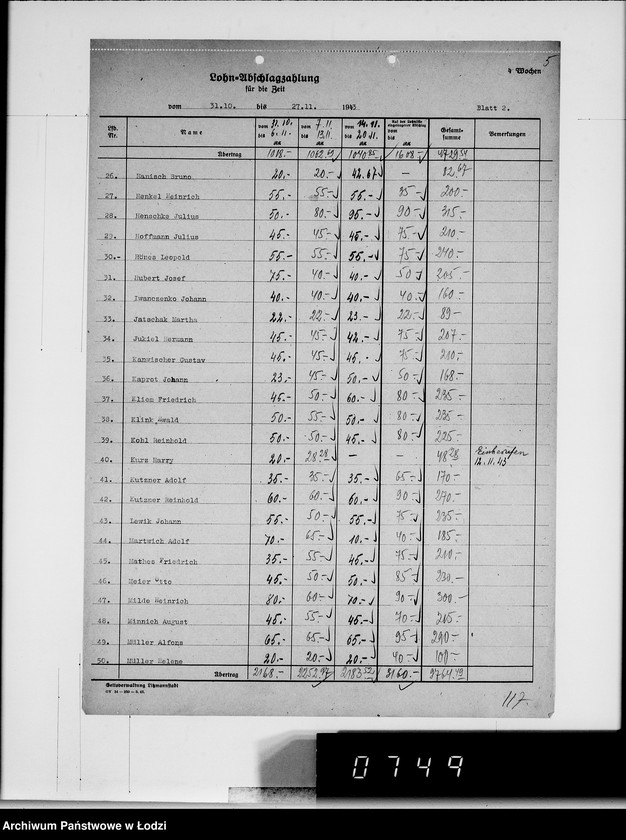 5
4 Wochen
Lohn-Abschlagzahlung
für die Zeit
vom 31.10. bis 27.11. 1943
Blatt 2.
Lfd. Nr. Name vom 31.10. bis 6.11. vom 7.11. bis 13.11. vom 14.11. bis 20.11. vom bis Gesamt-summe Bemerkungen
Übertrag 1018.- 1608.-
26. Hanisch Bruno 20.- 20.- 42.67 — 82,67
27. Henkel Heinrich 55.- 55.- 55.- 35.- 200.-
28. Henschke Julius 50.- 80.- 95.- 90.- 315.-
29. Hoffmann Julius 45.- 45.- 45.- 75.- 210.-
30.- Hönes Leopold 55.- 55.- 55.- 75.- 240.-
31. Hubert Josef 75.- 40.- 40.- 50 205.-
32. Iwanczenko Johann 40.- 40.- 40.- 40.- 160.-
33. Jatschak Martha 22.- 22.- 23.- 22.- 89-
34. Jukiel Hermann 45.- 45.- 42.- 75.- 207.-
35. Kanwischer Gustav 45.- 45.- 45.- 75.- 210.-
36. Kapret Johann 23.- 45.- 50.- 50.- 168.-
37. Kliem Friedrich 45.- 50.- 60.- 80.- 235.-
38. Klink Ewald 50.- 55.- 50.- 80.- 235.-
39. Kohl Reinhold 50.- 50.- 45.- 80.- 225.-
40. Kurz Harry 20.- 28.28 — — 48 28 Einberufen
12.11.43
41. Kutzner Adolf 35.- 35.- 35.- 65.- 170.-
42. Kutzner Reinhold 60.- 60.- 60.- 90.- 270.-
43. Lewik Johann 55.- 50.- 55.- 75.- 235.-
44. Martwich Adolf 70.- 65.- 10.- 40.- 185.-
45. Mathes Friedrich 35.- 55.- 45.- 75.- 210.-
46. Meier Otto 45.- 50.- 50.- 85.- 230.-
47. Milde Heinrich 80.- 60.- 70.- 90.- 300.-
48. Minnich August 45.- 55.- 45.- 70.- 215.-
49. Müller Alfons 65.- 65.- 65.- 95.- 290.-
50. Müller Helene 20.- 20.- 20.- 40.- 100.-
Übertrag 2168.- 2252.97 2183.52 3160.- 9764.49
Gettoverwaltung Litzmannstadt
117.
0749
Archiwum Państwowe w Łodzi